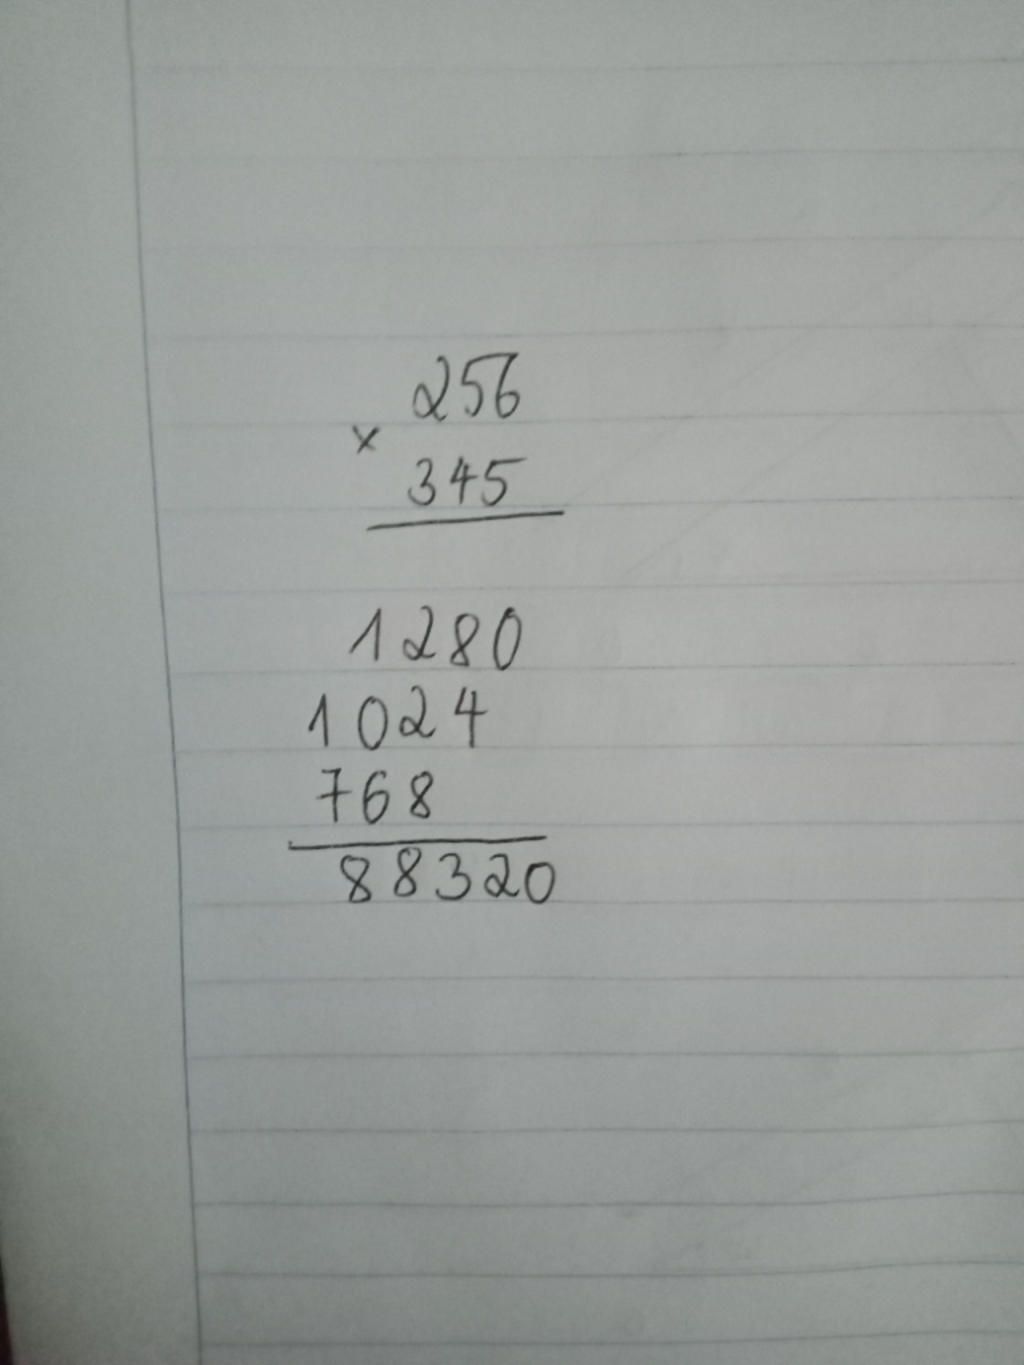 256
×
345
1280
1024
768
88320